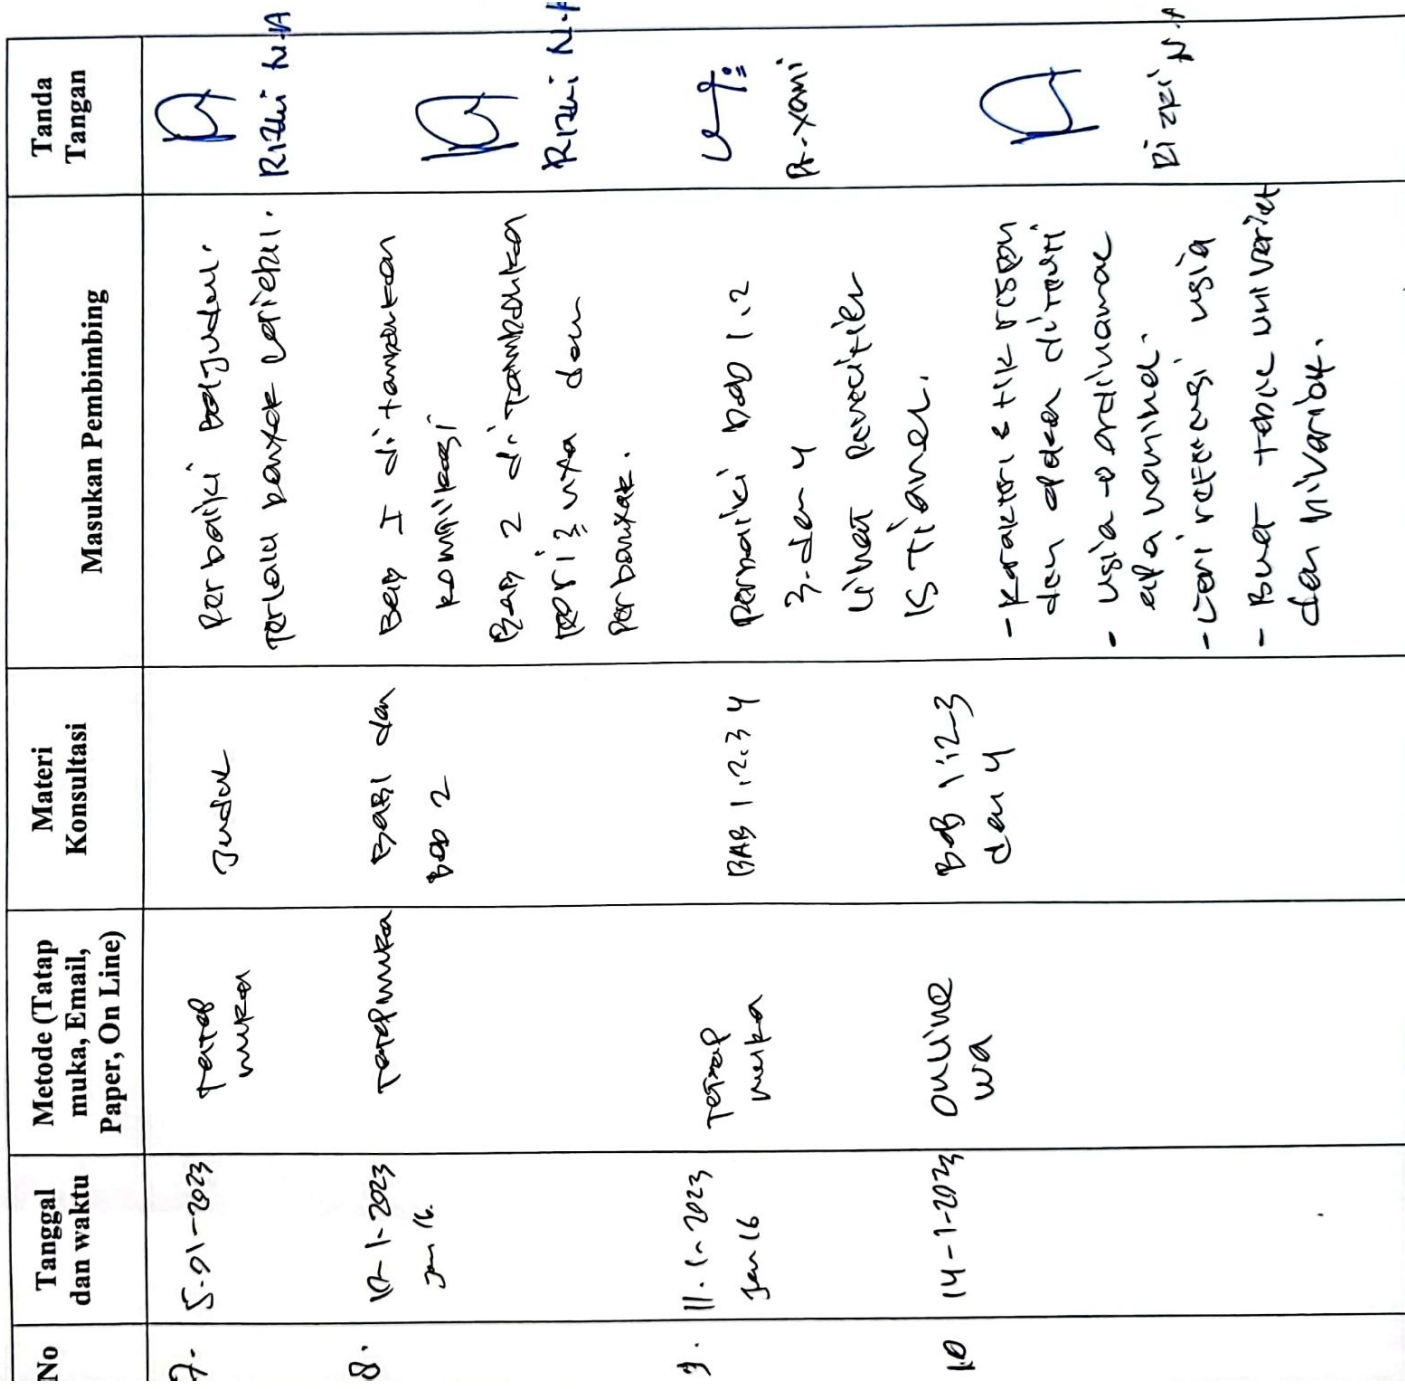 No
Tanggal
dan waktu
Metode (Tatap
muka, Email,
Paper, On Line)
Materi
Konsultasi
Masukan Pembimbing
Tanda
Tangan
7.
5-01-2023
Tatap
muka
Judul
Perbaiki
Terlalu banyak
Rizki N.A
8.
10-1-2023
Jam 16.
Tatap muka
Bab 1 dan
Bab 2
Bab I ditambahkan
komplikasi
Bab 2 ditambahkan
dan
Perbanyak.
Rizki N.A
9.
11-1-2023
Jam 16
Tatap
muka
BAB 1.2.3 4
Perbaiki bab 1.2
3. dan 4
Lihat
10
14-1-2023
Online
wa
BAB 1.2-3
dan 4
- Karakteristik respon
den
- usia
- Cari referensi usia
- Buat tabel univariat
dan bivariat.
Rizki N.A